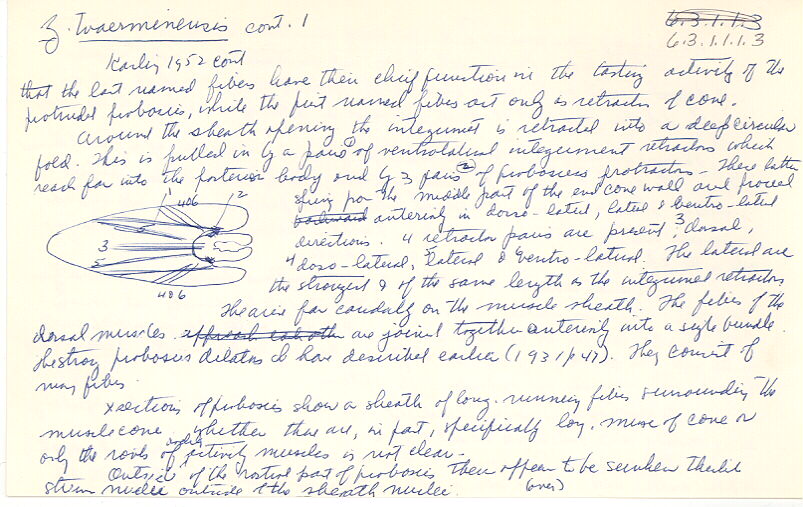 Z. Tvaerminensis cont. 1
6.3.1.1.3
6.3.1.1.1.3
Karling 1952 cont
that the last named fibers have their chief function in the tasting activity of the
protruded proboscis, while the first named fibers act only as retractors of cone.
Around the sheath opening the integument is retracted into a deep circular
fold. This is pulled in by a pair 1 of ventrolateral integument retractors which
reach far into the posterior body and by 3 pairs 2 of proboscis protractors - These latter
spring from the middle part of the end cone wall and proceed
backward anteriorly in dorso-lateral, lateral & ventro-lateral
directions. 4 retractor pairs are present, 3 dorsal,
4 dorso-lateral, 5 lateral & 6 ventro-lateral. The lateral are
the strongest & of the same length as the integument retractors
1
4&6
2
5
3
5
4&6
The arise far caudally on the muscle sheath. The fibers of the
dorsal muscles approach each other are joined together anteriorly into a single bundle.
The strong proboscis dilators I have described earlier (1931 p 47). They consist of
many fibers.
Xsections of proboscis show a sheath of long. running fibers surrounding the
muscle cone, whether these are, in part, specifically long. musc of cone or
only the roots of muscles is not clear.
Outside of the rostral part of proboscis then appear to be sunken
nuclei outside of the sheath nuclei.
(over)